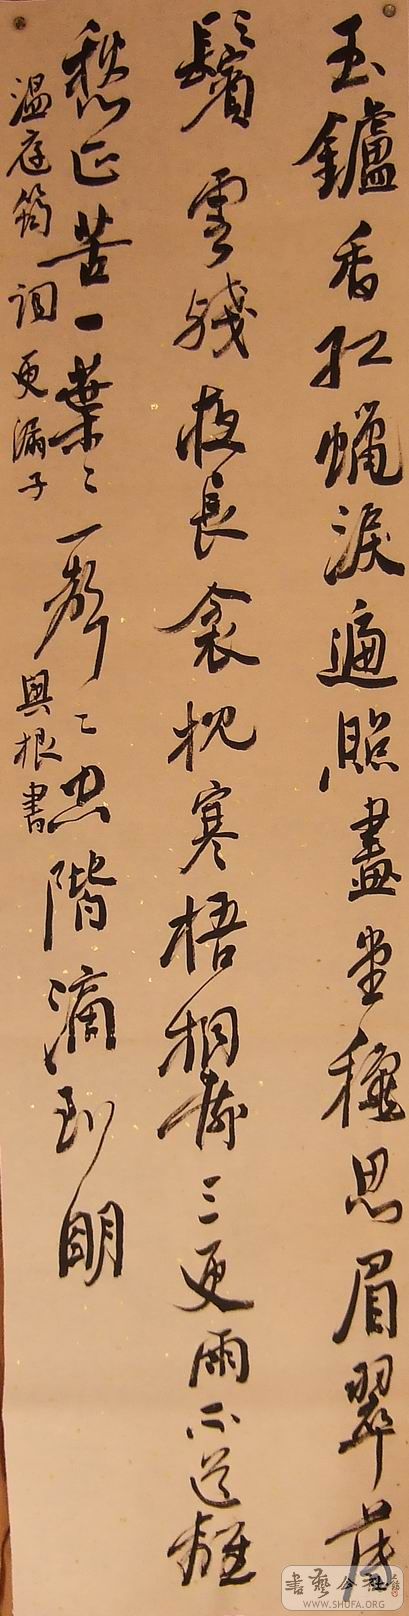 玉鑪香紅蠟淚遍照畫堂穐思眉翠薄
鬢雲殘夜長衾枕寒梧桐樹三更雨不道離
愁正苦一葉〻一聲〻空階滴到明
温庭筠詞更漏子 興根書
書藝公社
WWW.SHUFA.ORG